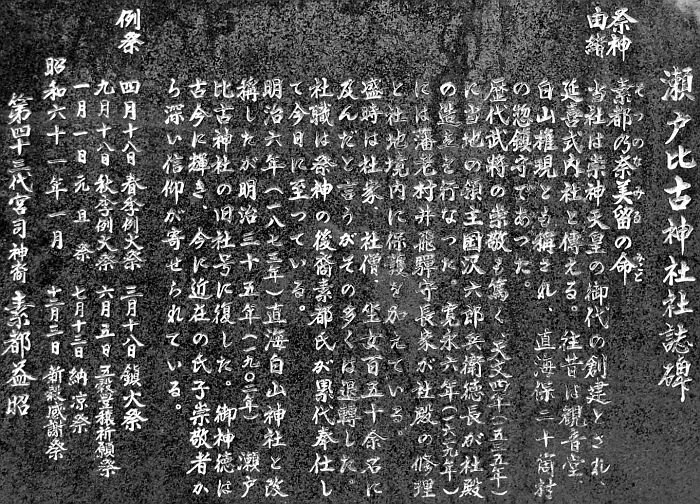 瀬戸比古神社社誌碑
祭神
素都乃奈美留の命
そつのなみるのみこと
由緒
当社は崇神天皇の御代の創建とされ、
延喜式内社と傳える。往昔は観音堂
白山権現とも稱され、直海保二十箇村
の惣鎮守であった。
歴代武将の崇敬も篤く天文四年(一五三五年)
に当地の領主国沢六郎兵衛徳長が社殿
の造立を行なった。寛永六年(一六二九年)
には藩老村井飛騨守長家が社殿の修理
と社地境内に保護を加えている。
盛時は社家、社僧、坐女百五十余名に
及んだと言うがその多くは退轉した。
社職は祭神の後裔素都氏が累代奉仕し
て今日に至っている。
明治六年(一八七三年)直海白山神社と改
稱したが明治三十五年(一九〇二年)瀬戸
比古神社の旧社号に復した。御神徳は
古今に輝き今に近在の氏子崇敬者か
ら深い信仰が寄せられている。
例祭
四月十八日 春季例大祭 三月十八日 鎮火祭
九月十八日 秋季例大祭 六月五日 五穀豊穣祈願祭
一月一日 元旦祭 七月十三日 納涼祭
十二月三日 新穀感謝祭
昭和六十一年一月
第四十三代宮司神裔 素都益昭